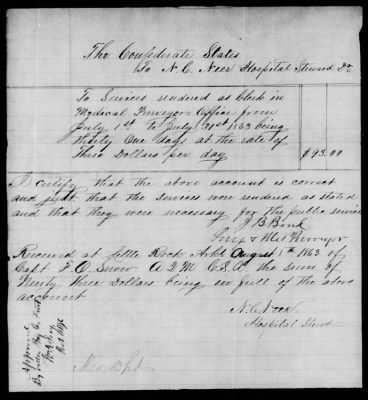 The Confederate States
To N. C. Neer Hospital Steward Dr.
To Services rendered as Clerk in
Medical Purveyors Office from
July 1st to July 31st 1863 being
thirty one days at the rate of
Three Dollars per day $93.00
I certify that the above account is correct
and just that the services were rendered as stated
and that they were necessary for the public service
J B Bond
Surg & Med Purveyor
Received at Little Rock Arks August 5th 1863 of
Capt. F. O. Snow A Q M C.S.A. the sum of
Ninety three Dollars being in full of the above
account
N. C. Neer
Hospital Stewd
Approved
By order
Med Dpt